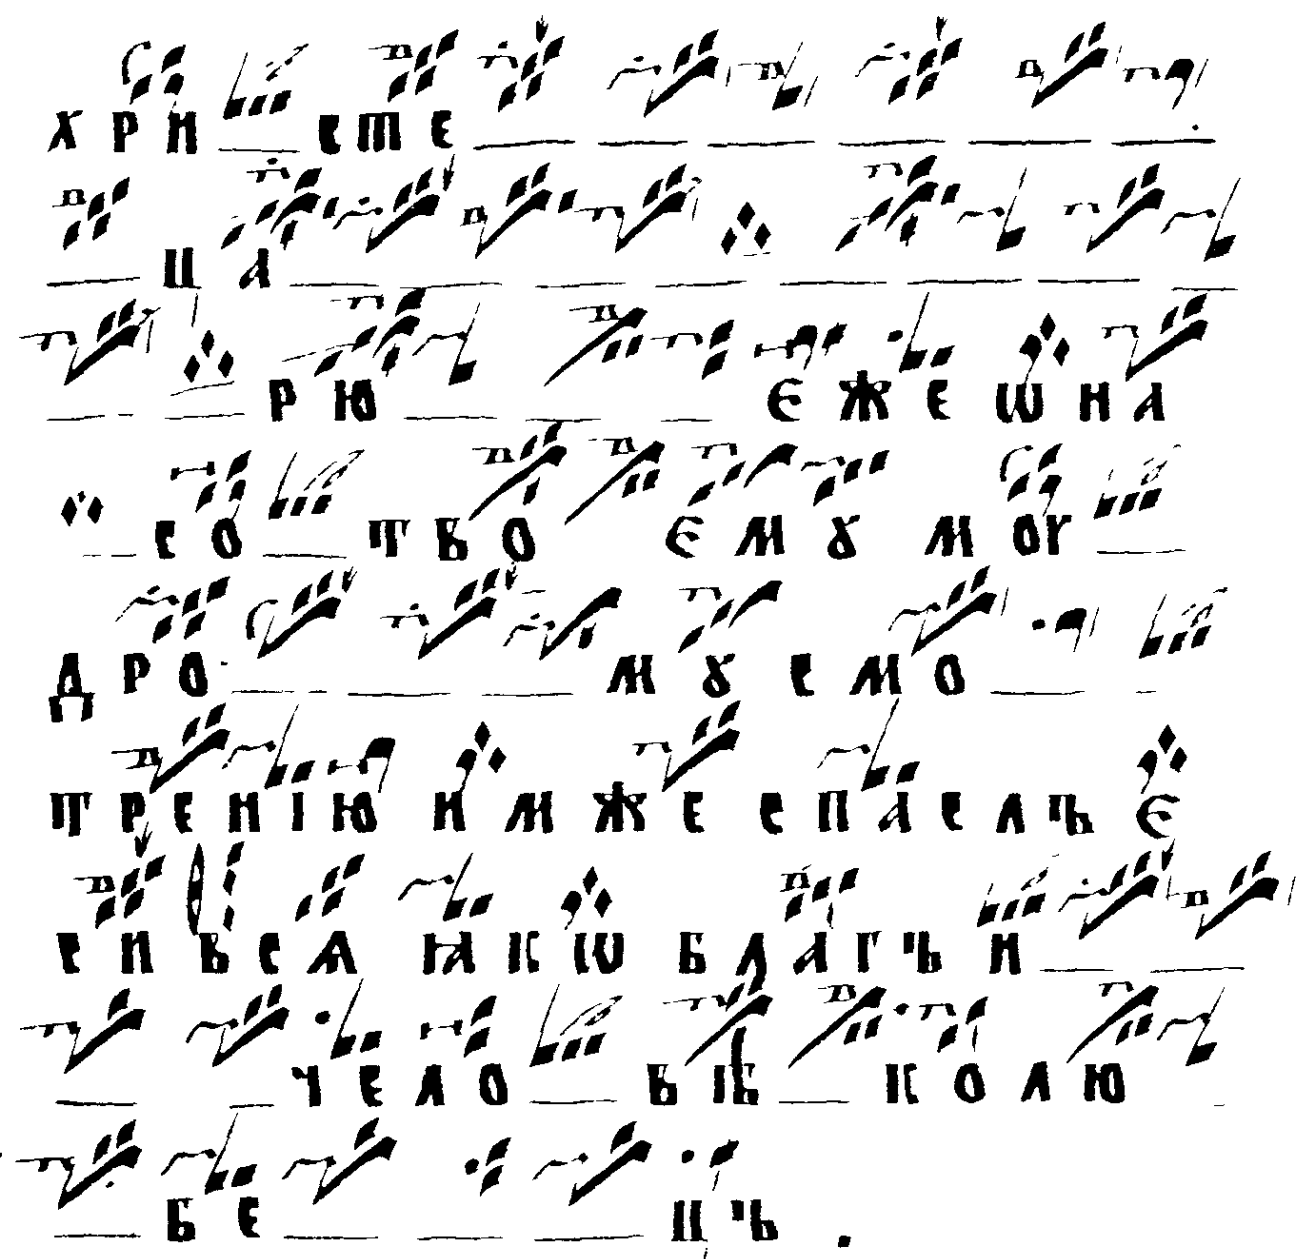 хри сте
ца
рю єже ѡ на
со тво ємꙋ моу
дро мꙋ емо
трению и мже еспаслъ є
си всѧ ꙗкѡ благъи
человѣколю
бе цъ .